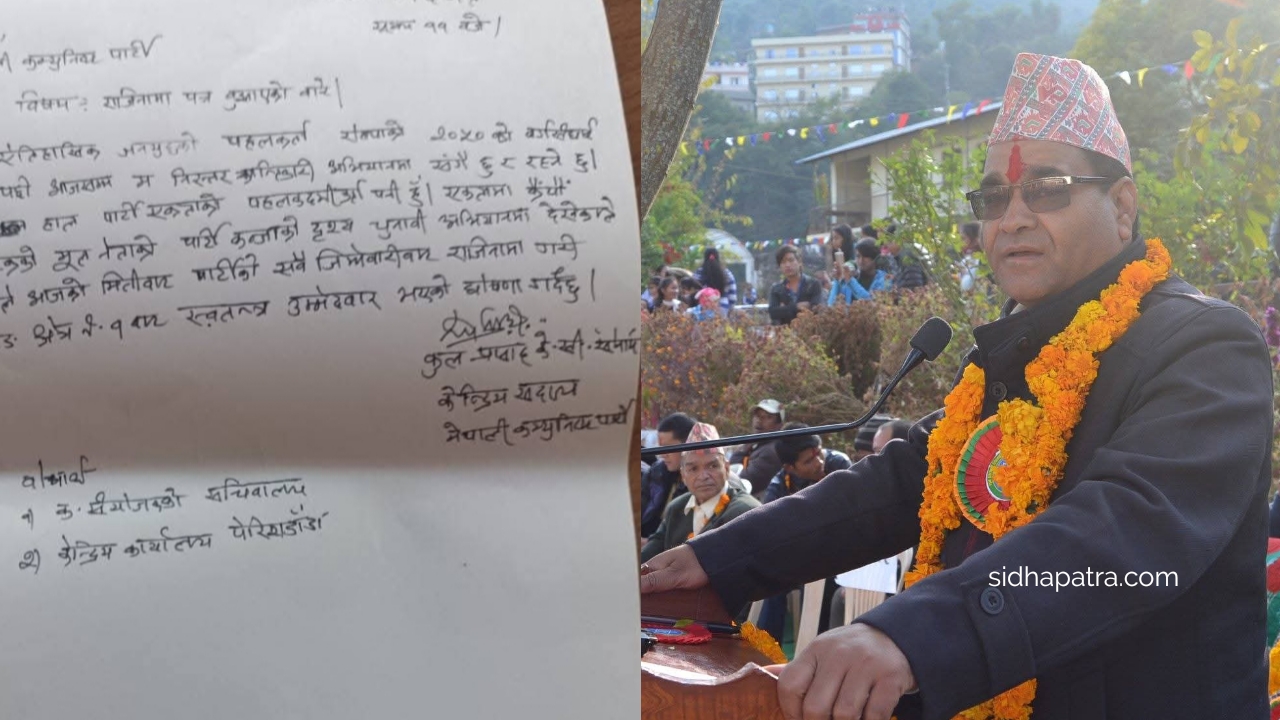 समय ११ बजे।
कम्युनिष्ट पार्टी
विषय: राजिनामा पत्र बुझाएको बारे।
ऐतिहासिक जनयुद्धको पहलकर्ता २०५० को
पछी आजसम्म म निरन्तर क्रान्तिकारी अभियानमा संगै छु र रहने छु।
हाल पार्टी एकताको हुँ। एकतामा
मूल नेताको पार्टी कब्जाको दृश्य चुनावी अभियानमा देखेकाले
आजको मितीबाट पार्टीको सबै जिम्मेवारीबाट राजिनामा गरी
क्षेत्र नं. १ बाट स्वतन्त्र उम्मेदवार भएको घोषणा गर्दछु।
कुल प्रसाद के.सी.
केन्द्रिय सदस्य
नेपाली कम्युनिष्ट पार्टी
बोधार्थ
१) क. संयोजकको सचिवालय
२) केन्द्रिय कार्यालय पेरिसडाँडा
sidhapatra.com